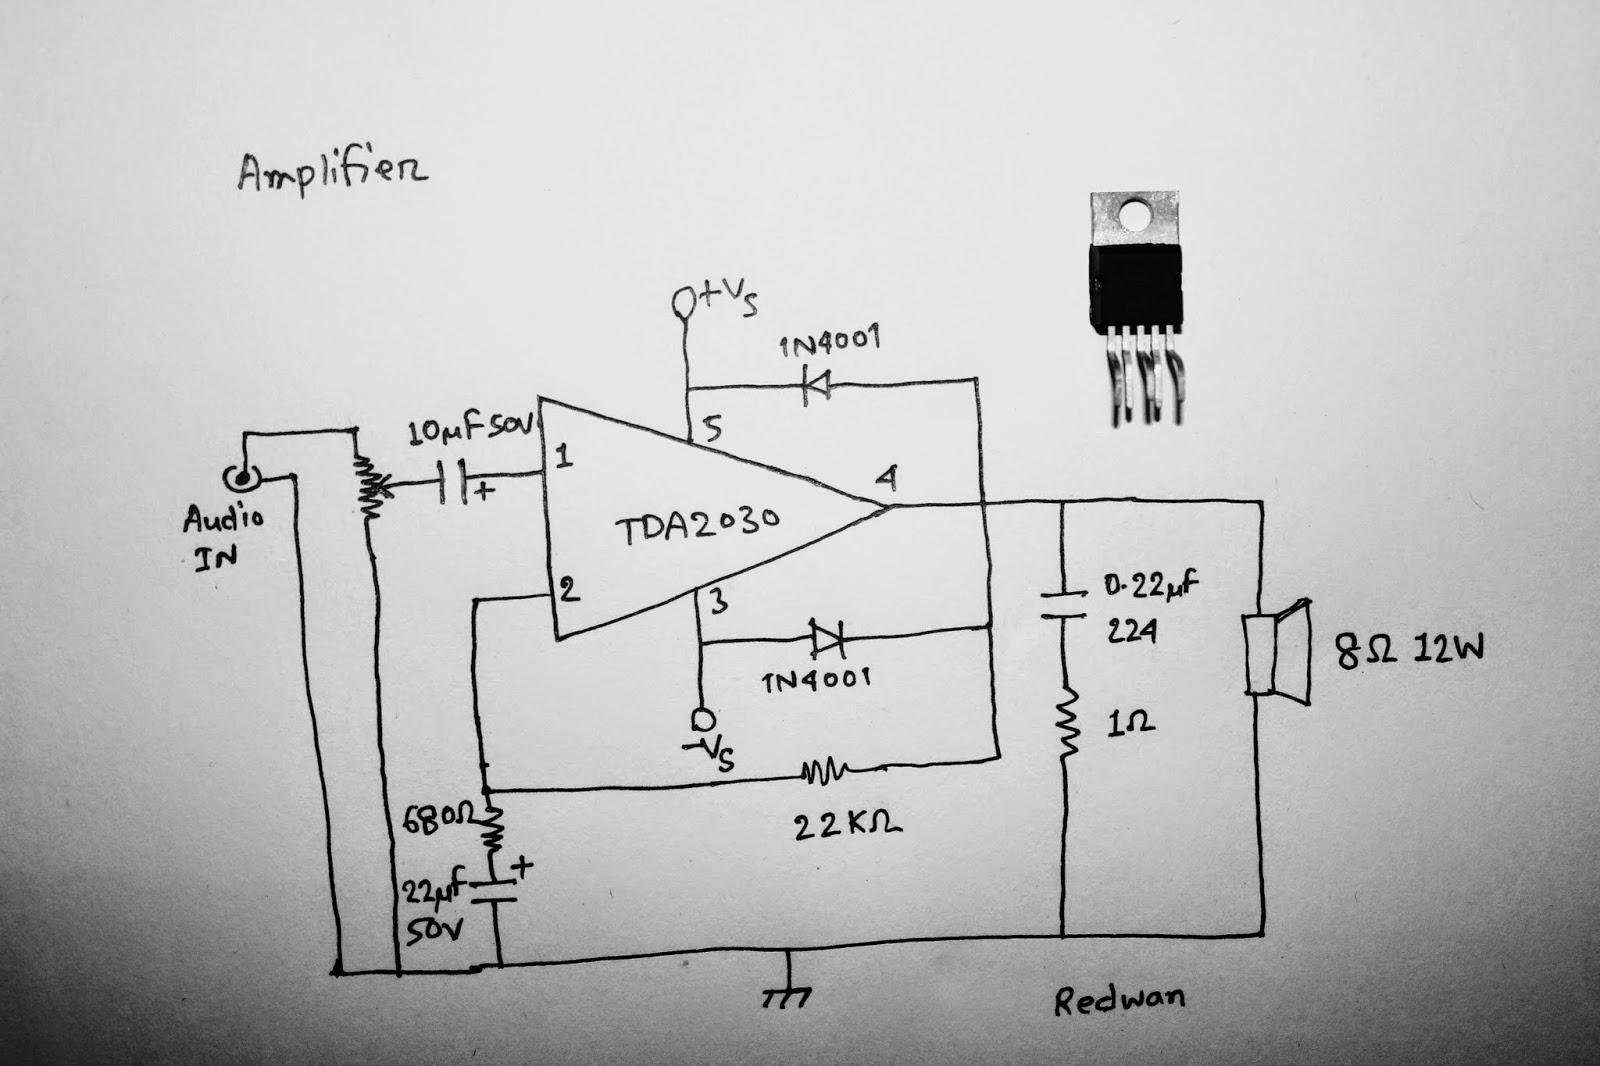 Amplifier
+Vs
1N4001
10μF 50V
5
1
4
Audio
IN
TDA2030
2
3
0.22μF
224
8Ω 12W
1N4001
-Vs
1Ω
680Ω
22KΩ
+
22μF
50V
+
Redwan